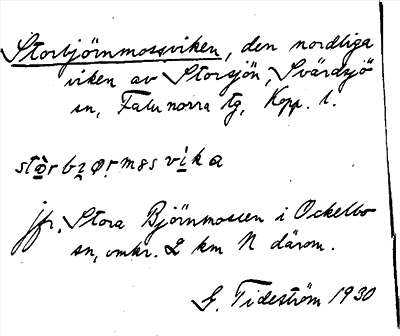 Storbjörnmossviken, den nordliga
viken av Storsjön, Svärdsjö
sn, Falu norra tg, Kopp. l.
sto̱rbzørmɞsvi̱ka
jfr. Stora Björnmossen i Ockelbo
sn, omkr. 2 km N därom.
G. Tideström 1930